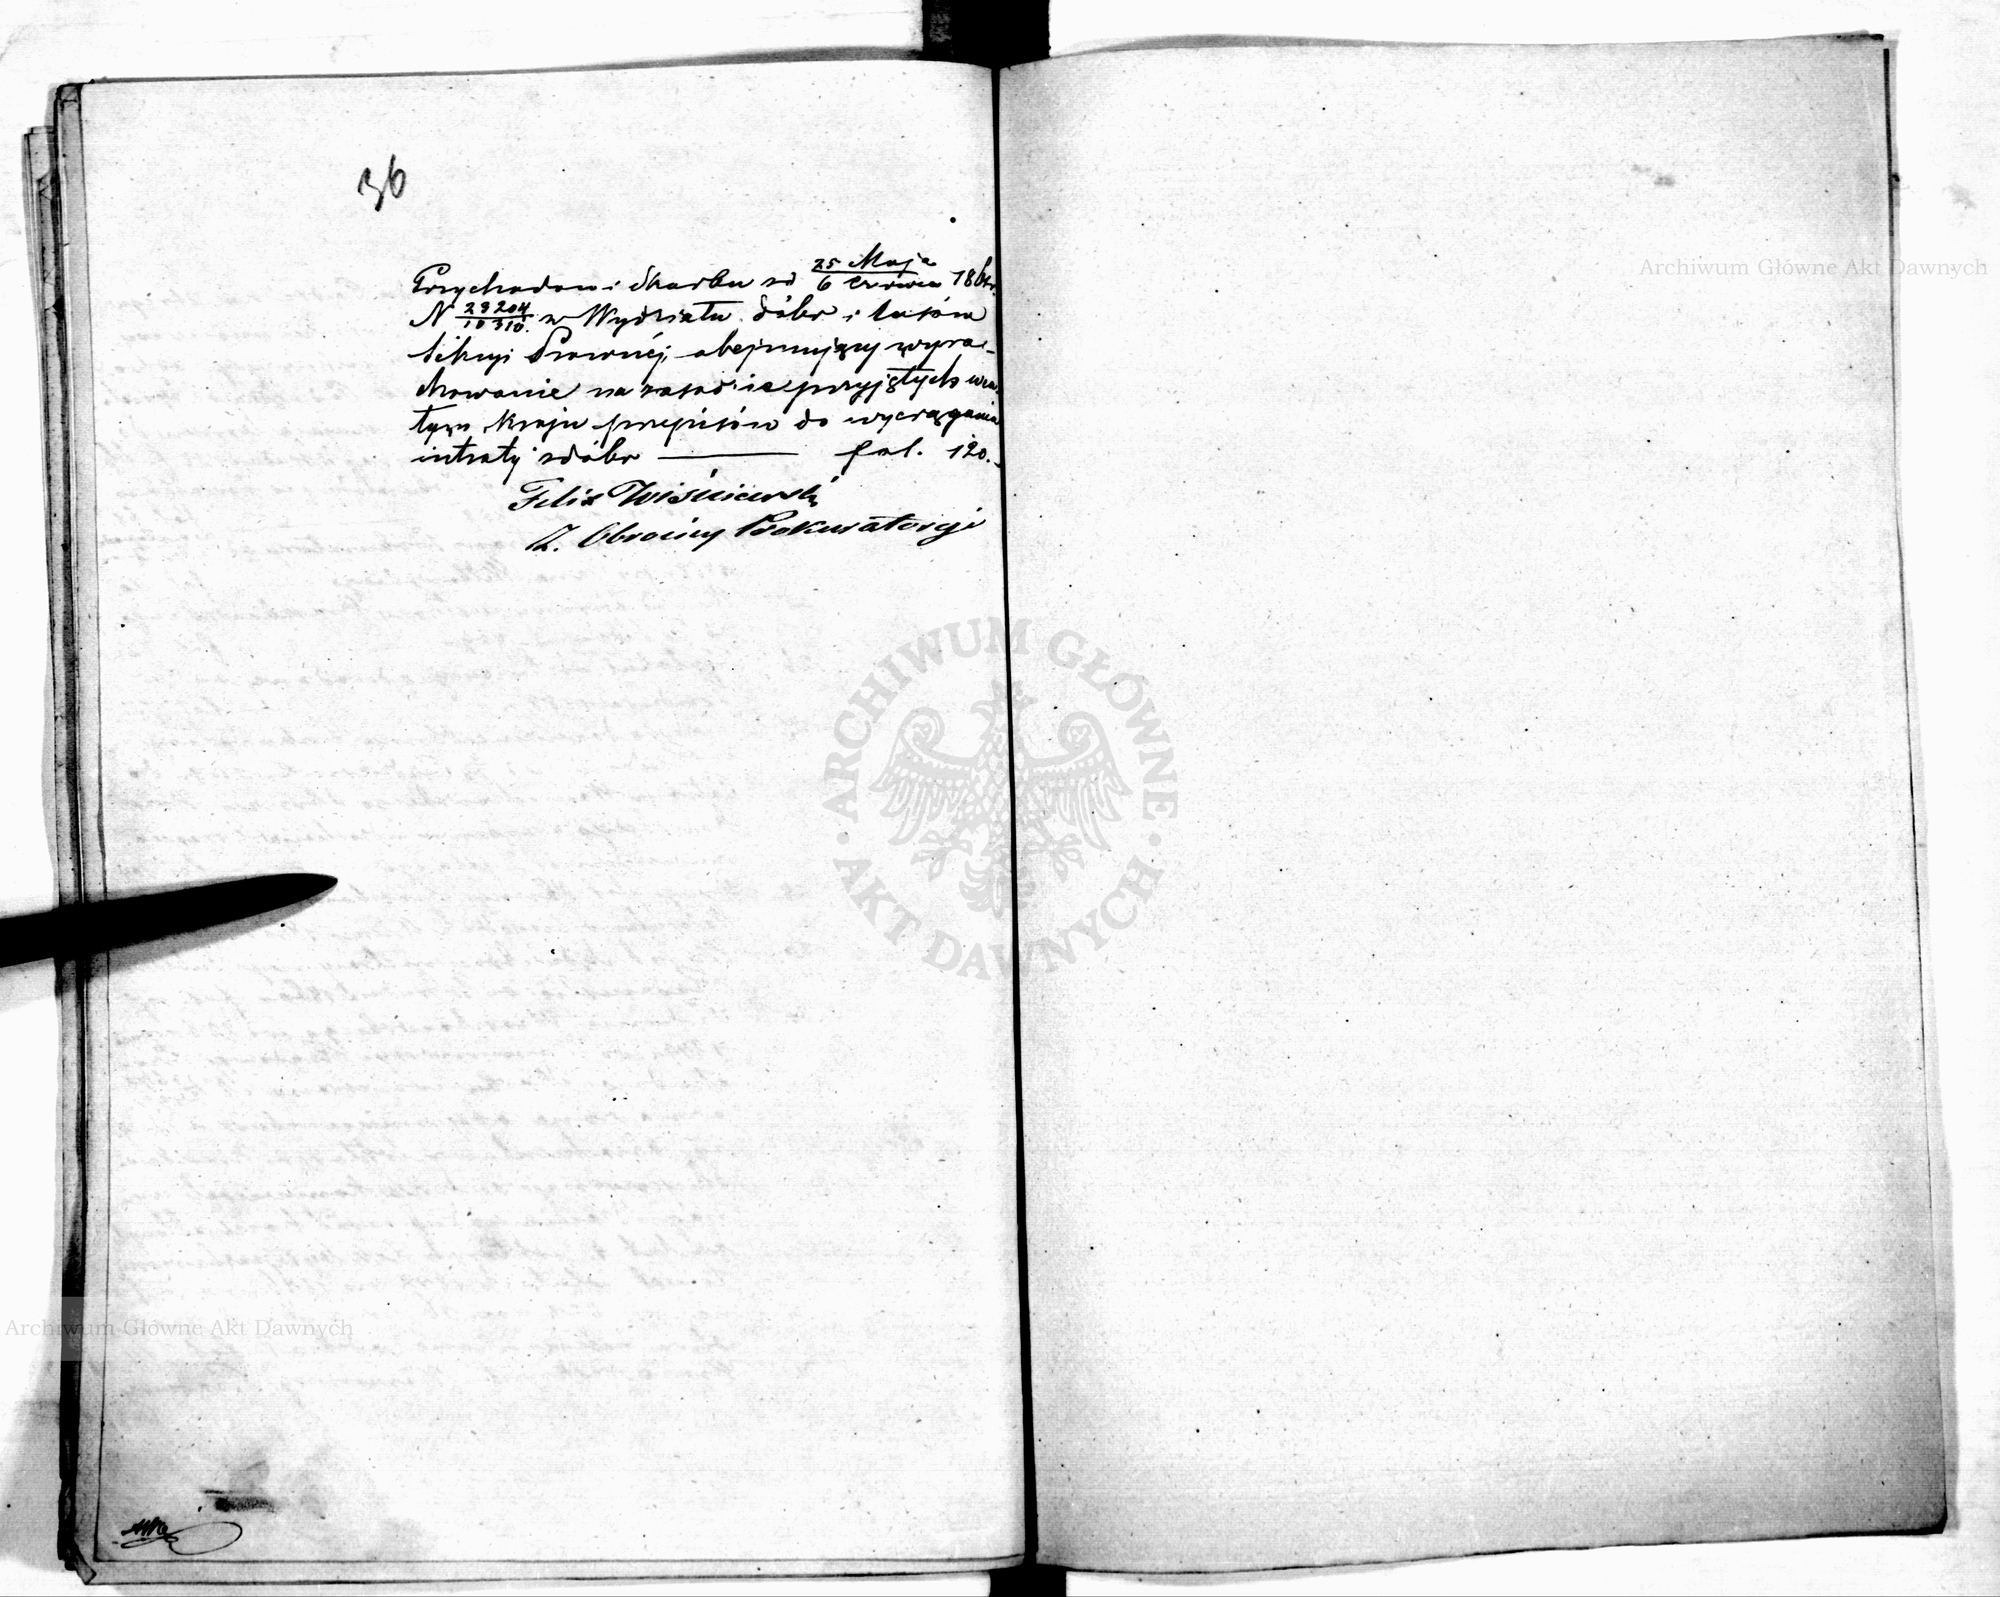 36
Przychodów i Skarbu od 25 Maja / 6 Czerwca 186
N 28204/10310. w Wydziału dóbr i lasów
Sekcyi Prawnéj, obejmujący wyra-
chowanie na zasadzie przyjętych w ca-
łym Kraju przepisów do wyciągania
intraty z dóbr — fol. 120.
Felix Wiśniewski
Z. Obrońcy Prokuratoryi
Archiwum Główne Akt Dawnych
ARCHIWUM GŁÓWNE · AKT DAWNYCH ·
Archiwum Główne Akt Dawnych